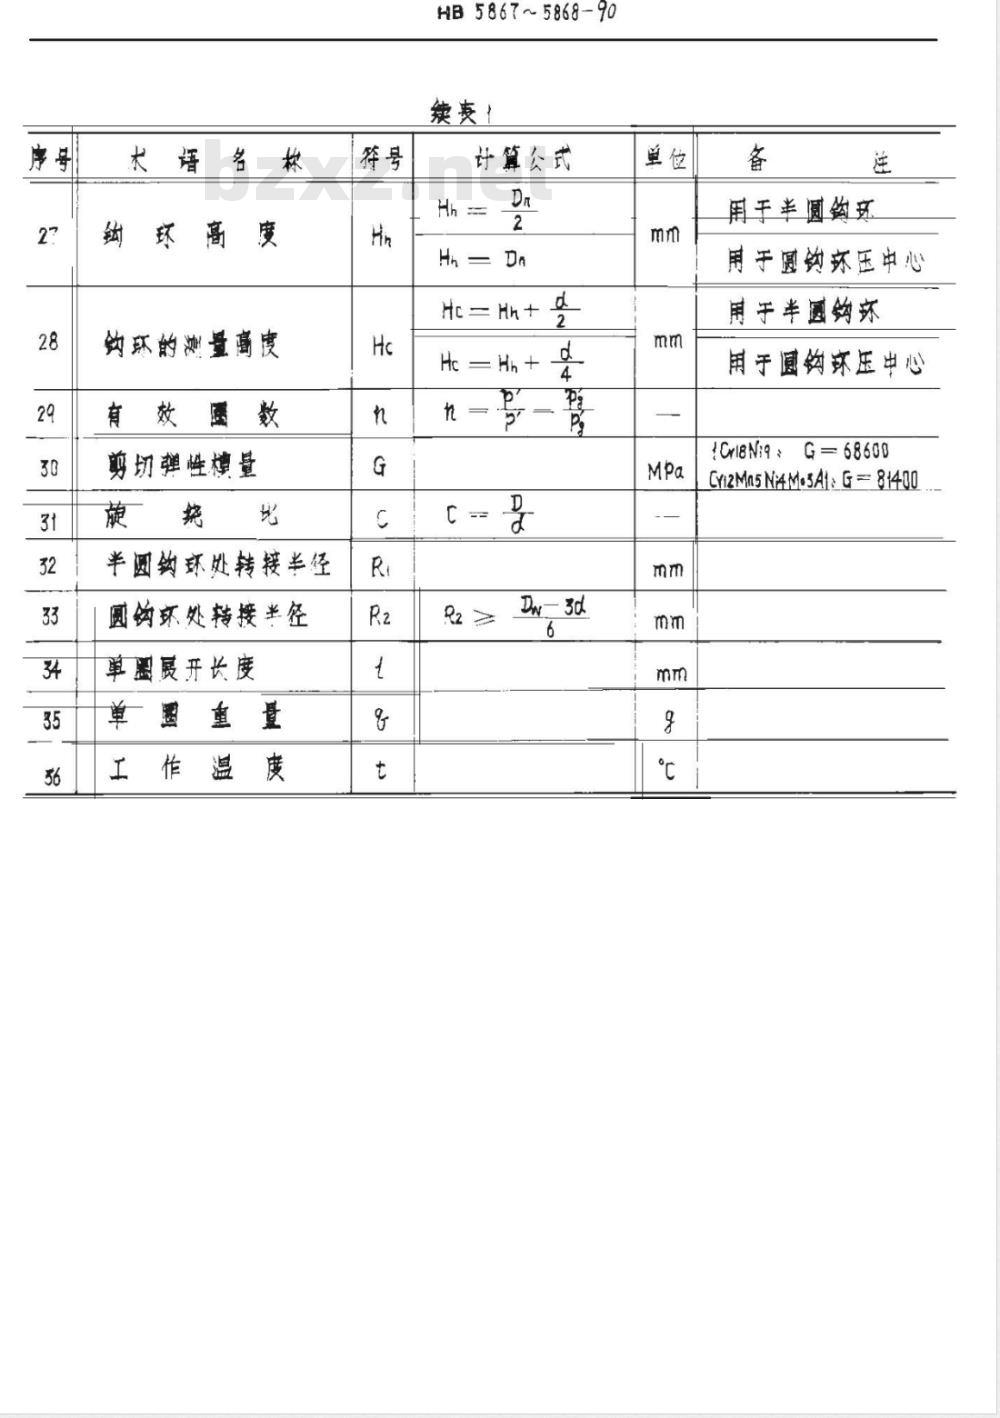 HB 5867～5868-90
续表1
序号 术语名称 符号 计算公式 单位 备注
27 钩环高度 Hh Hh = Dn/2 mm 用于半圆钩环
Hh = Dn 用于圆钩环压中心
28 钩环的测量高度 Hc Hc = Hh + d/2 mm 用于半圆钩环
Hc = Hh + d/4 用于圆钩环压中心
29 有效圈数 n n = —
30 剪切弹性模量 G MPa 1Cr18Ni9: G = 68600
Cr12Mn5Ni4Mo3Al: G = 81400
31 旋绕比 C C = D/d —
32 半圆钩环处转接半径 R1 mm
33 圆钩环处转接半径 R2 R2 ≥ (Dw-3d)/6 mm
34 单圈展开长度 l mm
35 单圈重量 g g
36 工作温度 t °C
bzxz.net